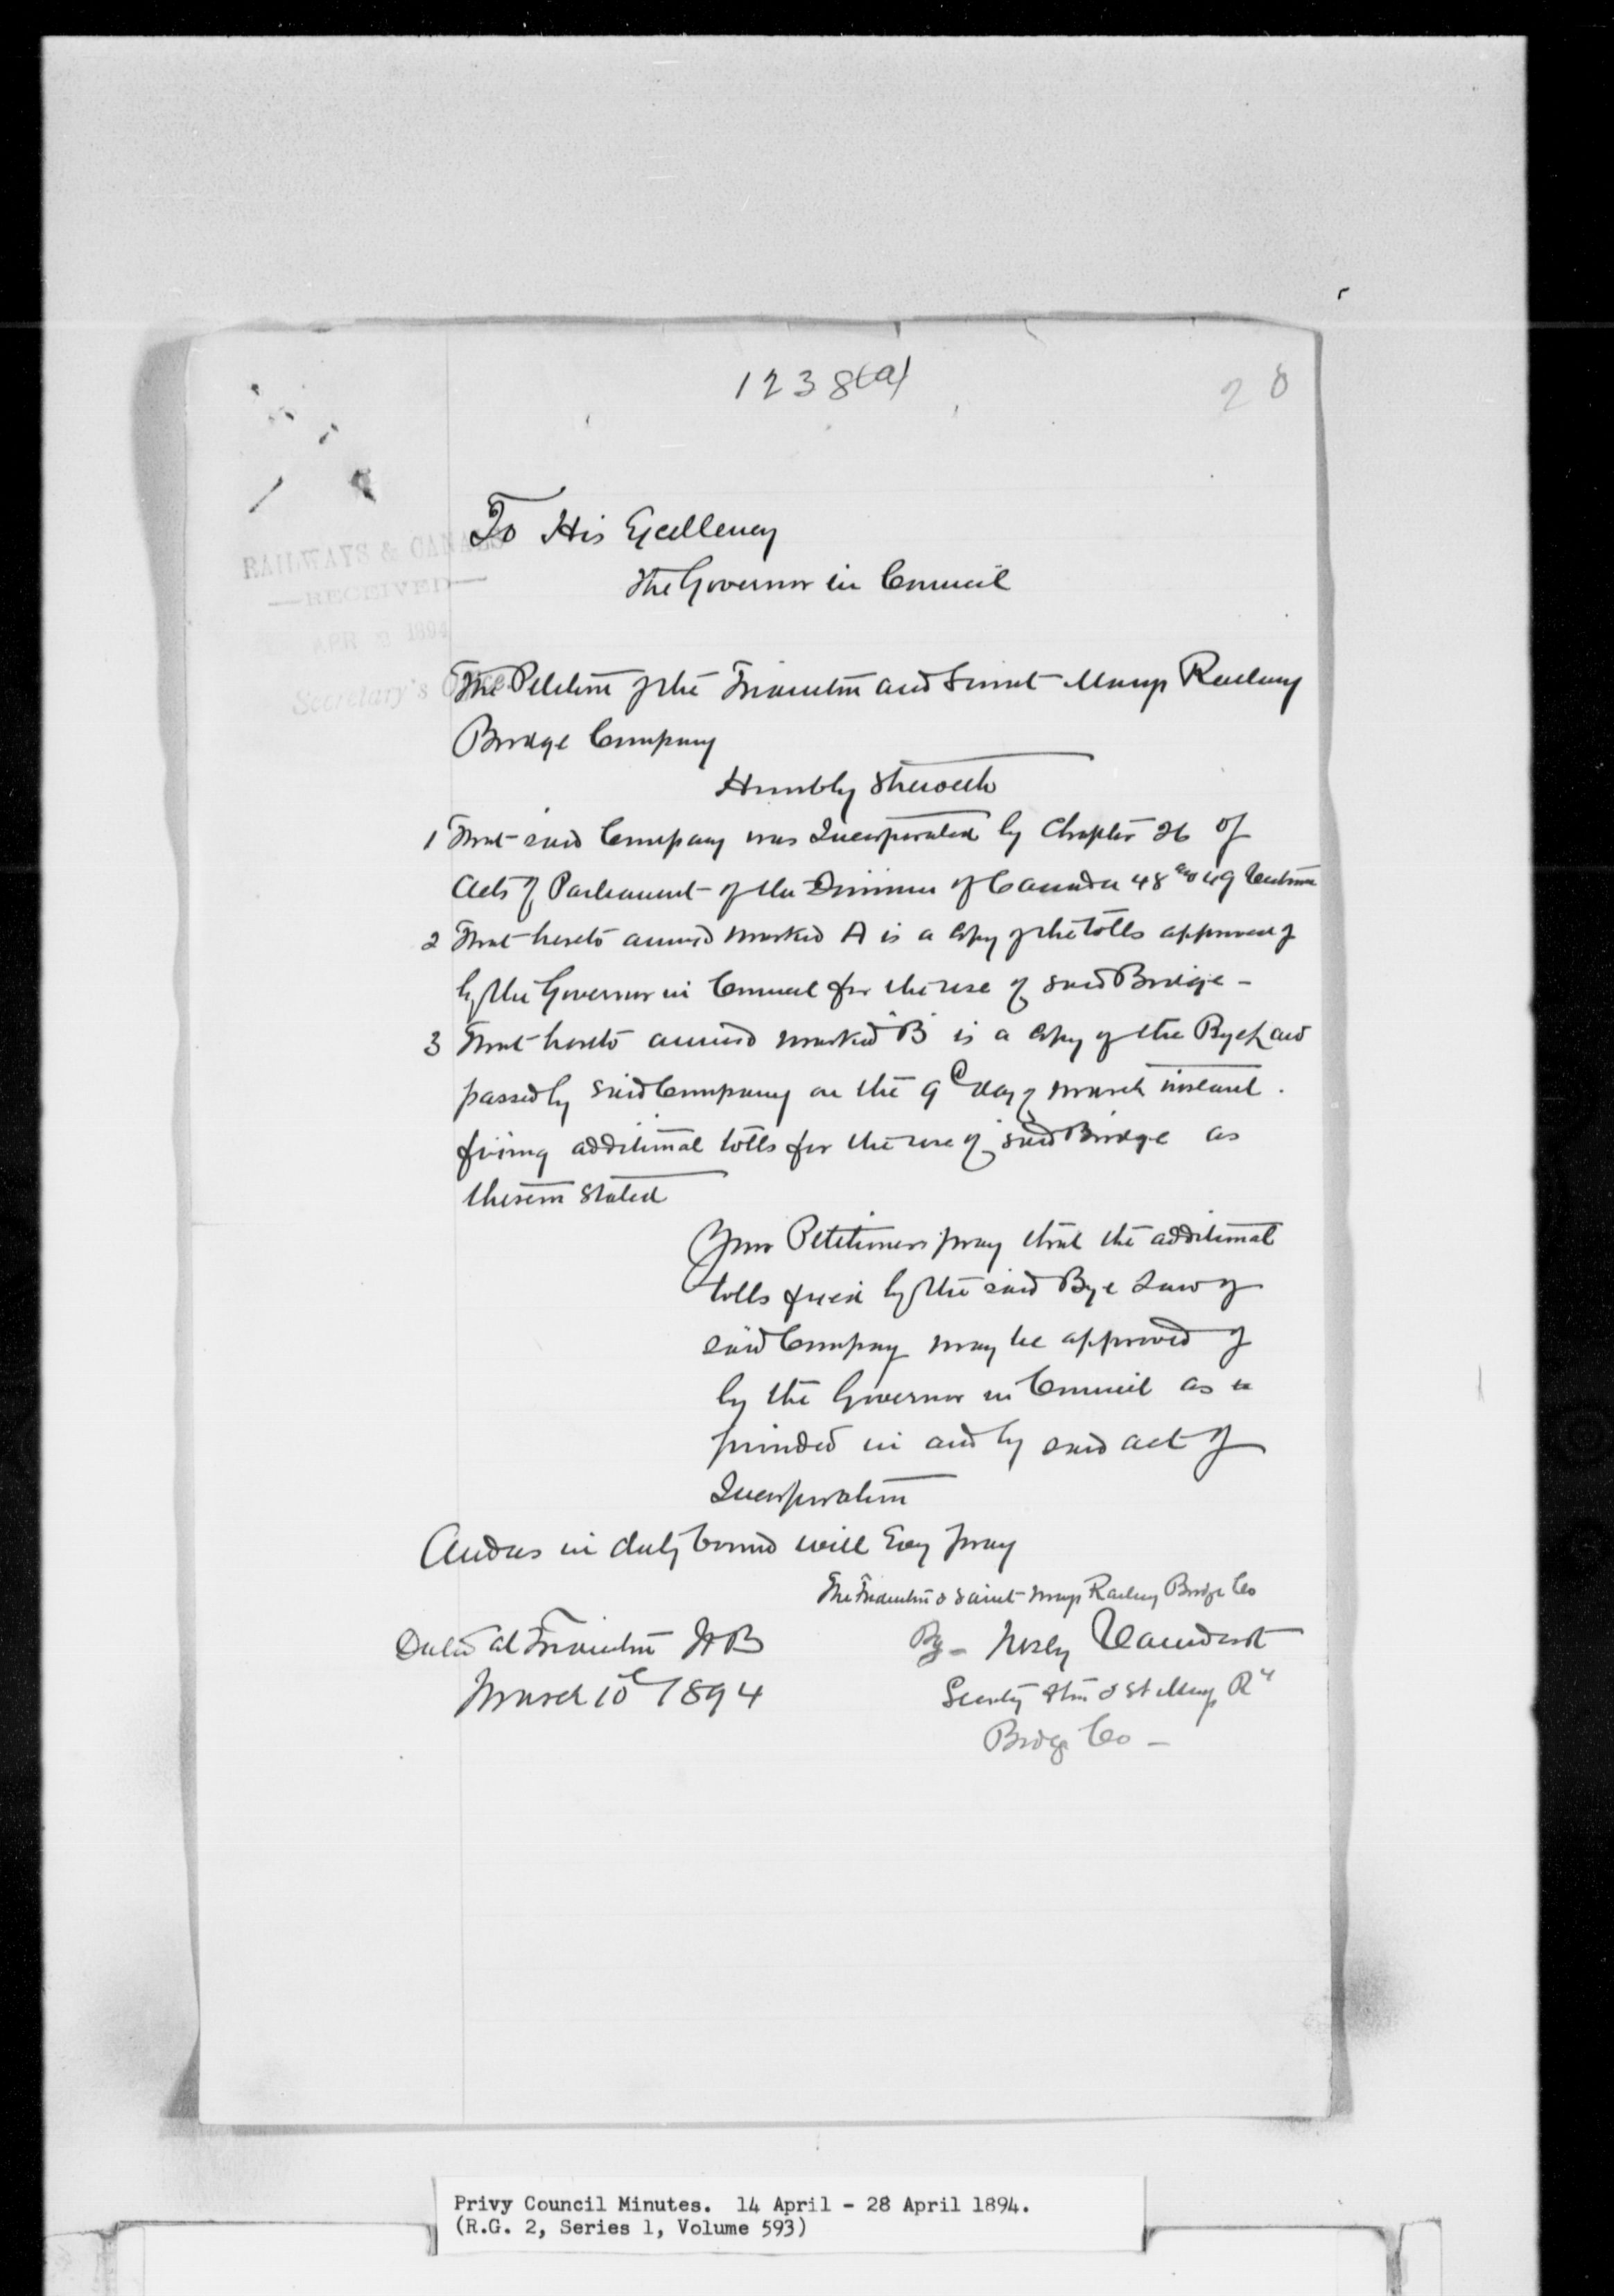 1238(a)
28
RAILWAYS & CANALS
—RECEIVED—
APR 3 1894
Secretary's Office
To His Excellency
The Governor in Council
The Petition of the Fredericton and Saint Marys Railway
Bridge Company
Humbly Sheweth
1 That said Company was Incorporated by Chapter 26 of
Acts of Parliament of the Dominion of Canada 48 and 49 Victoria
2 That hereto annexed marked A is a copy of the tolls approved of
by the Governor in Council for the use of said Bridge -
3 That hereto annexed marked "B" is a copy of the Bye Law
passed by said Company on the 9th day of March instant.
fixing additional tolls for the use of said Bridge as
therein stated
Your Petitioners pray that the additional
tolls fixed by the said Bye Law of
said Company may be approved of
by the Governor in Council as is
provided in and by said act of
Incorporation
And as in duty bound will Ever pray
The Fredericton & Saint Marys Railway Bridge Co
By -
Dated at Fredericton N B
March 10th 1894
Secretary Fton & St Marys Ry
Bridge Co -
Privy Council Minutes. 14 April - 28 April 1894.
(R.G. 2, Series 1, Volume 593)